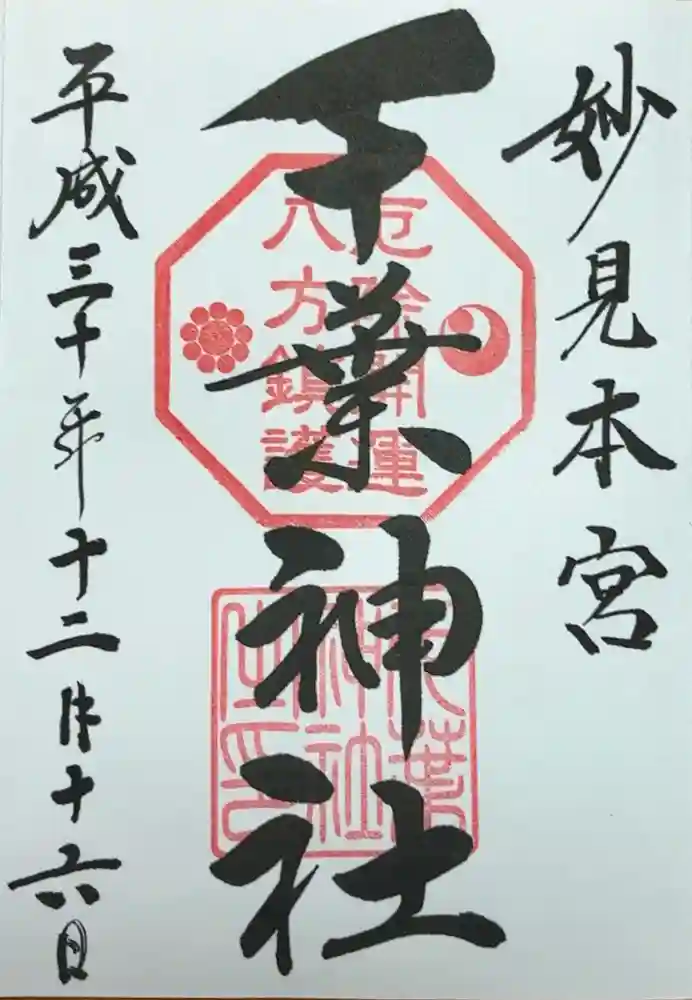 妙見本宮
千葉神社
厄除開運
八方鎮護
千葉
神社
之印
平成三十年十二月十六日